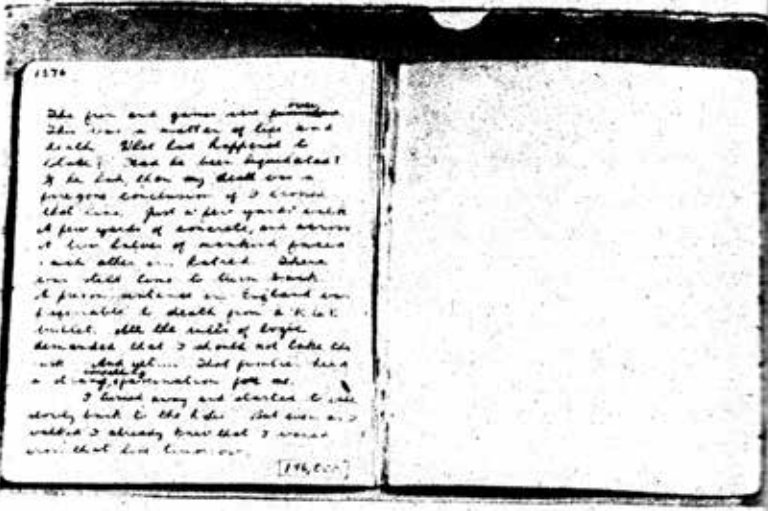 1376
The fun and games are over
This was a matter of life and
death. What had happened to
Blake? Had he been liquidated?
If he had, then my death was a
foregone conclusion if I crossed
that line. Just a few yards' walk
A few yards of concrete, and across
it two halves of mankind faced
each other in hatred. There
was still time to turn back.
A prison sentence in England was
preferable to death from a K.G.B.
bullet. All the rules of logic
demanded that I should not take the
risk. And yet.... That frontier held
a strong fascination for me.
I turned away and started to walk
slowly back to the hotel. But even as I
walked I already knew that I would
cross that line tomorrow.